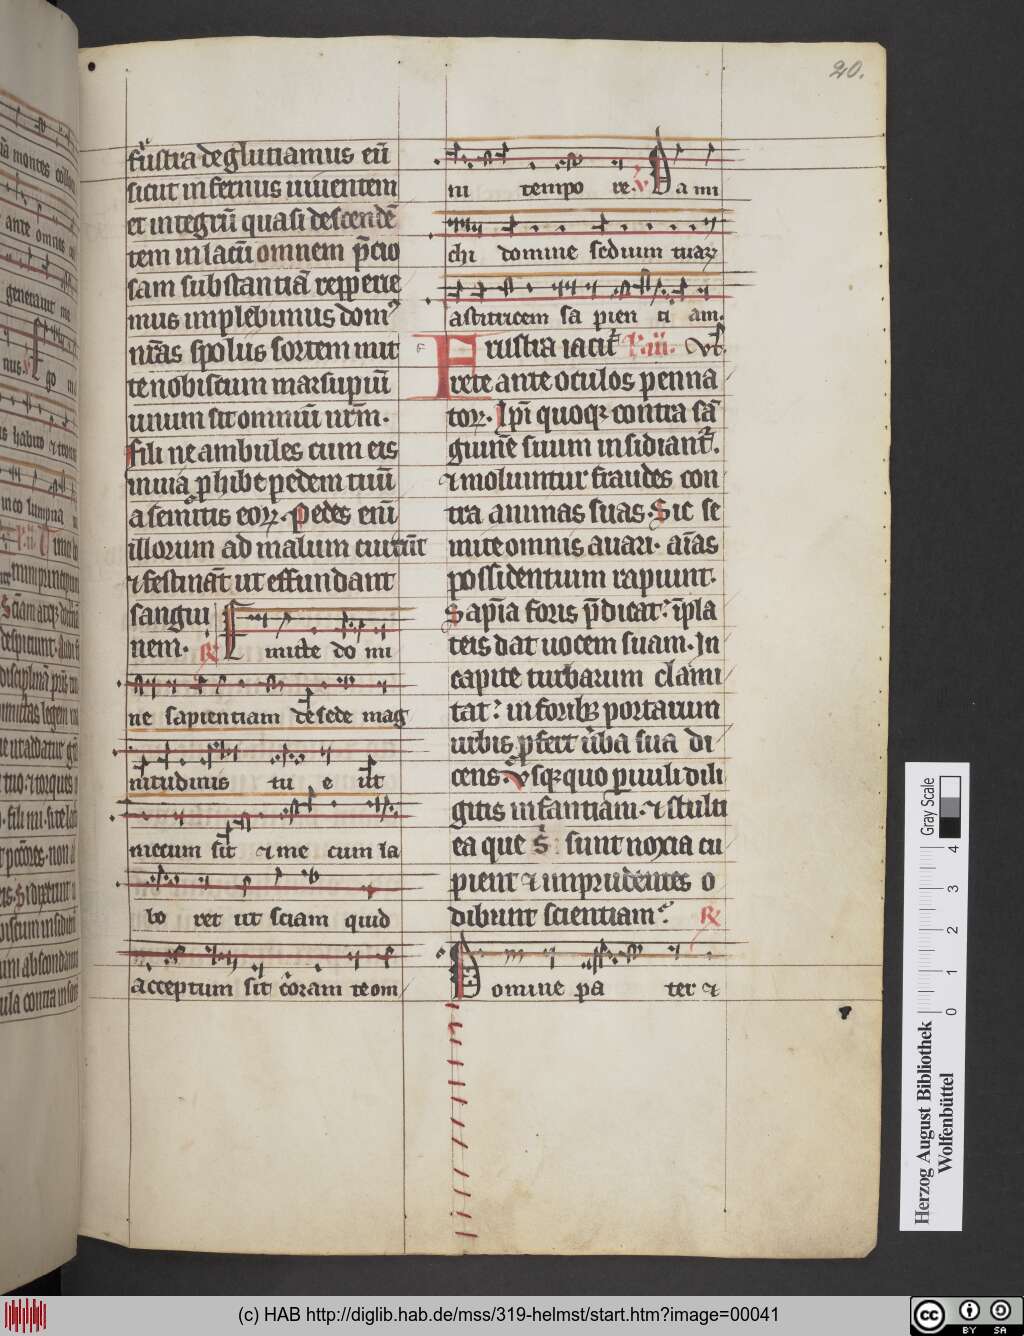 20.
frustra deglutiamus eū
sicut infernus viventem
et integrū quasi descendē
tem in lacū omnem p̄cio
sam substantiā repperie
mus implebimus domꝰ
nr̄as spoliis sortem mit
te nobiscum marsupiū
unum sit omniū nr̄m.
fili ne ambules cum eis
in via ꝓhibe pedem tuū
a semitis eoꝝ. Pedes eni
illorum ad malum currūt
⁊ festināt ut effundant
sangui
nem. ℟ Emitte domi
ne sapientiam de sede mag
nitudinis tu e ut
mecum sit ⁊ me cum la
bo ret ut sciam quid
acceptum sit coram te om
ni tempo re. ℣ Da mi
chi domine sedium tuaꝝ
astitricem sa pien ti am.
Frustra iacit̄
rete ante oculos penna
toꝝ. Ipi quoqꝫ contra sā
guinē suum insidiant᷑.
⁊ moliuntur fraudes con
tra animas suas. Sic se
mite omnis avari. aīas
possidentium rapiunt.
Sapīa foris p̄dicat: ī pla
teis dat vocem suam. In
capite turbarum clami
tat: in foribꝫ portarum
urbis ꝓfert v̄ba sua di
cens. Usqꝫquo parvuli dili
gitis infantiam. ⁊ stulti
ea que s̄ sunt noxia cu
pient ⁊ imprudētes o
dibunt scientiam. ℟
Domine pa ter ⁊
0 1 2 3 4
Gray Scale
Herzog August Bibliothek
Wolfenbüttel
(c) HAB http://diglib.hab.de/mss/319-helmst/start.htm?image=00041
cc BY SA